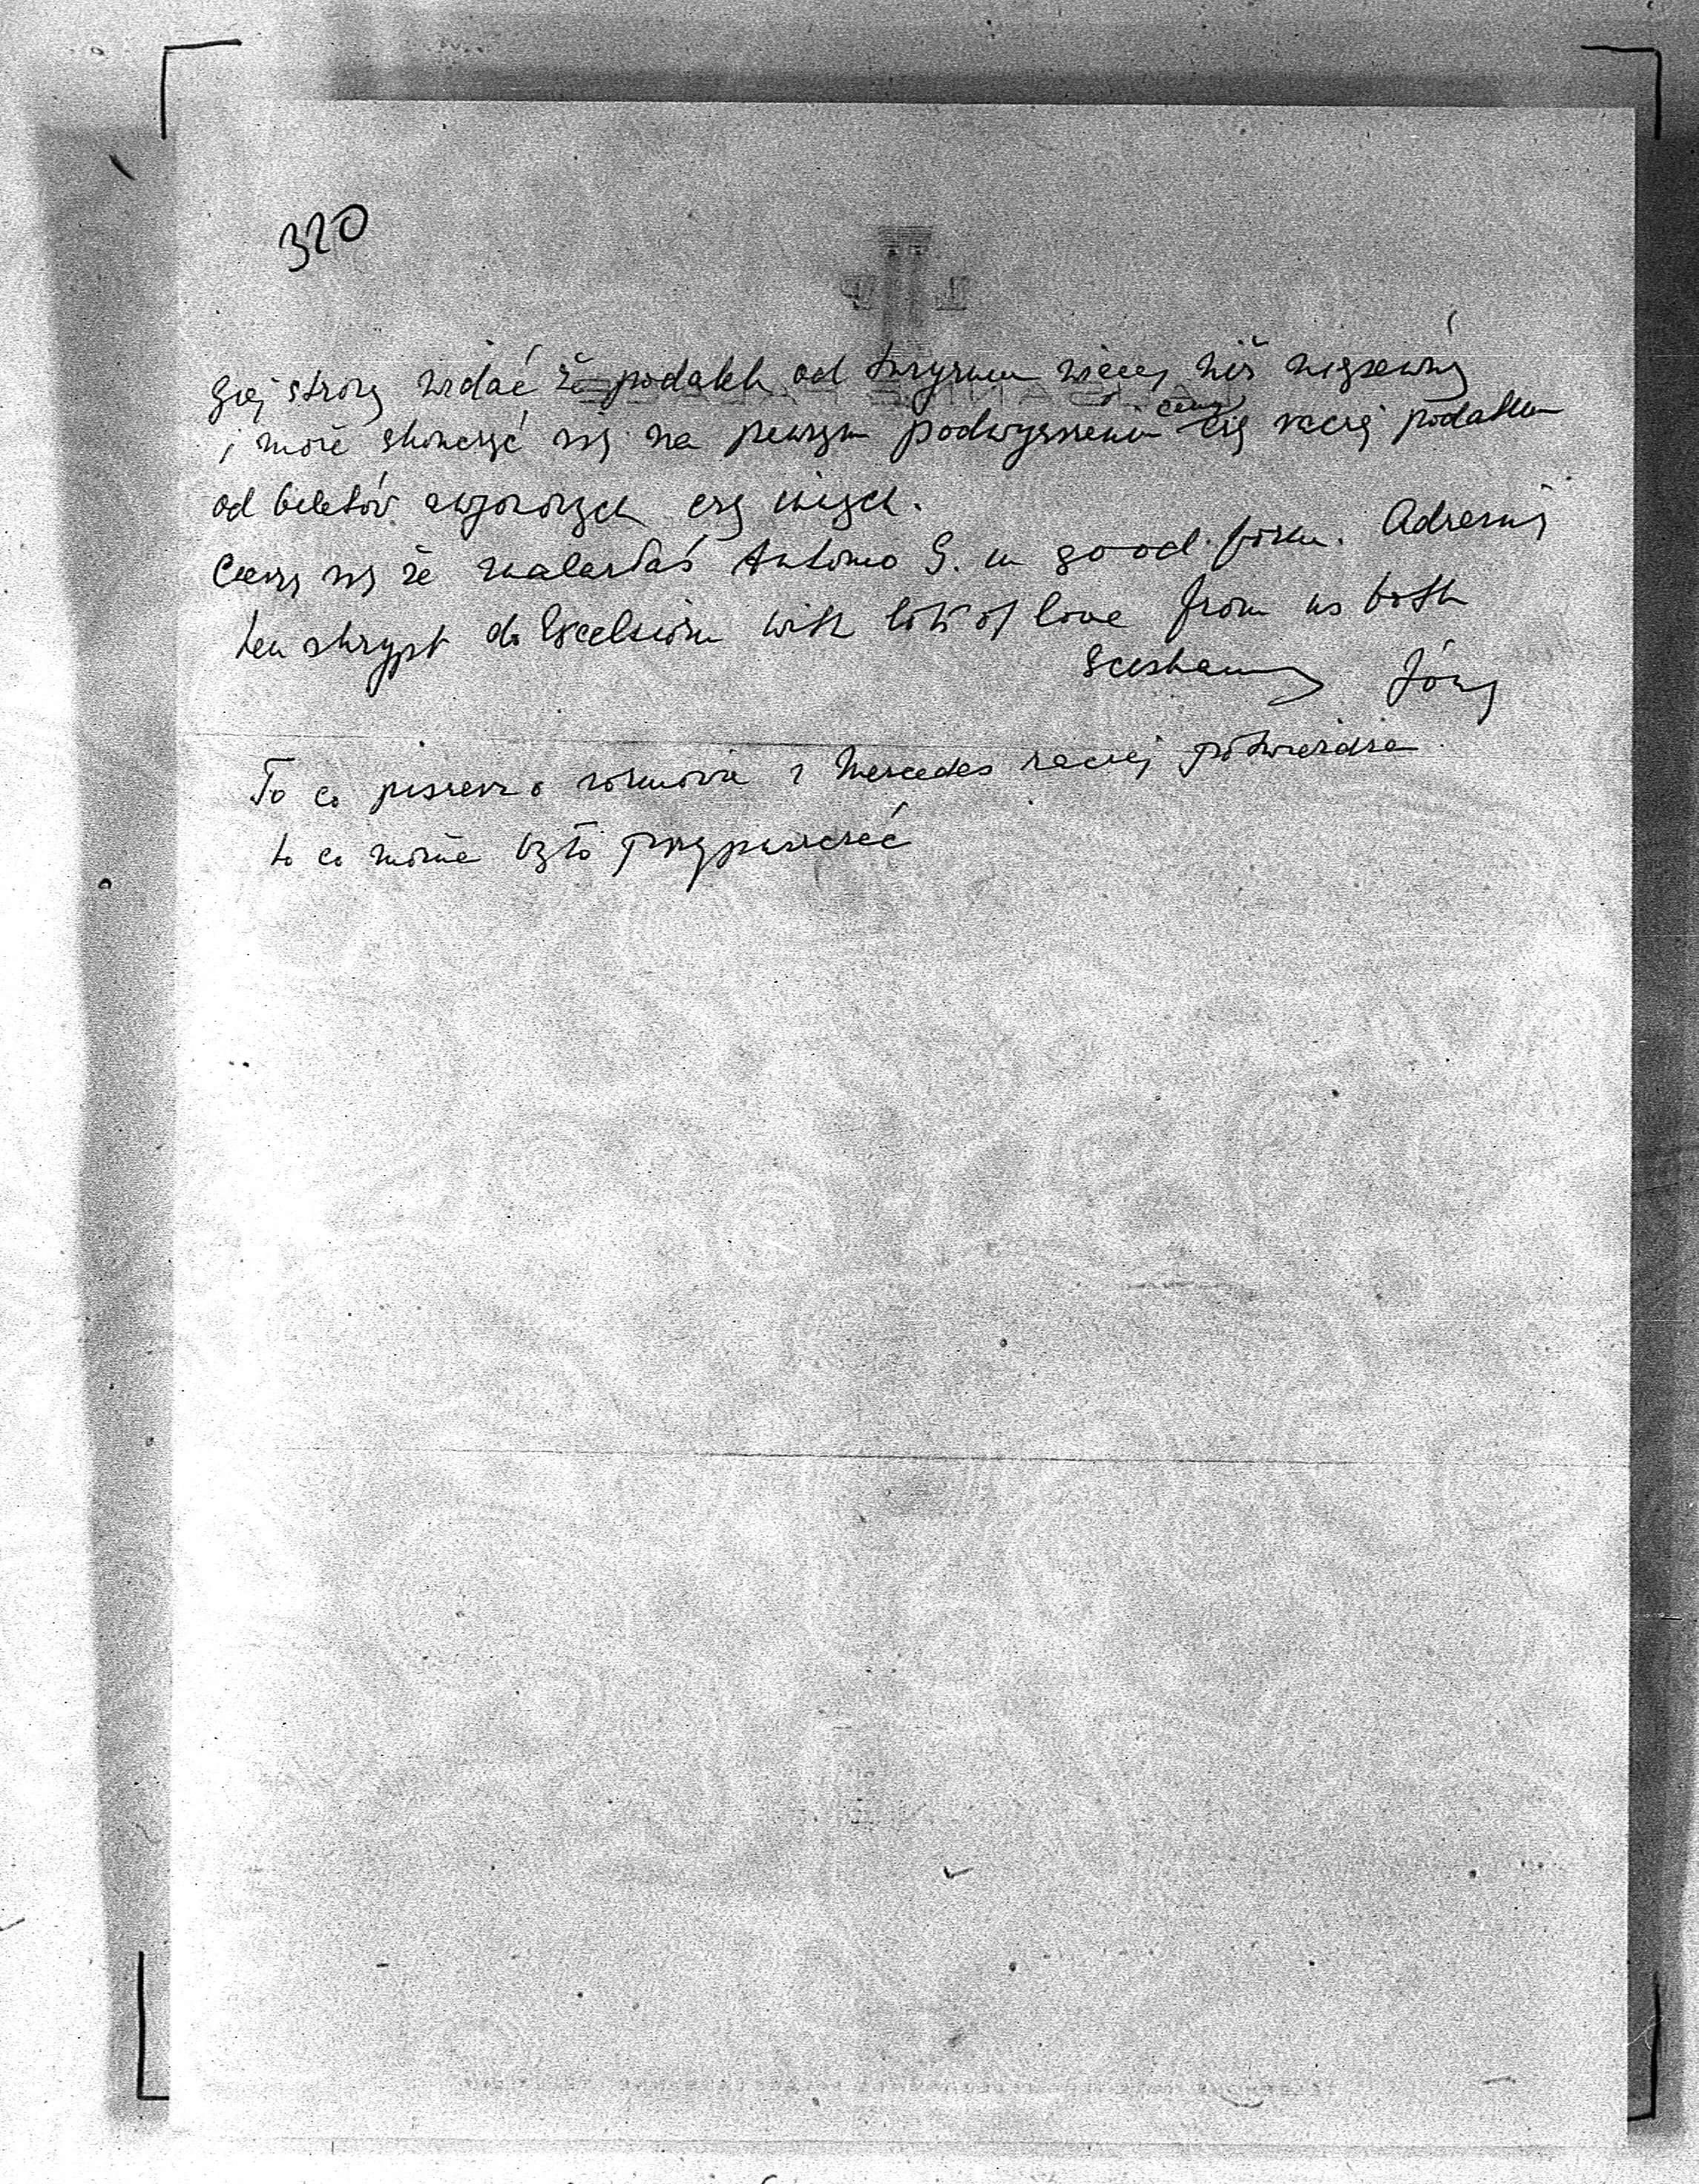 320
giej strony widać że podatek od turyzmu więcej niż niepewny
i może skończyć się na pewnym podwyższeniu ceny racej podatku
od biletów czy innych.
Cieszę się że znalazłaś Antonio G. in good form. Adresuję
ten skrypt do Excelsioru with lots of love from us both
Józ
To co piszesz o rozmowie z Mercedes raczej potwierdza
to co można było przypuszczać